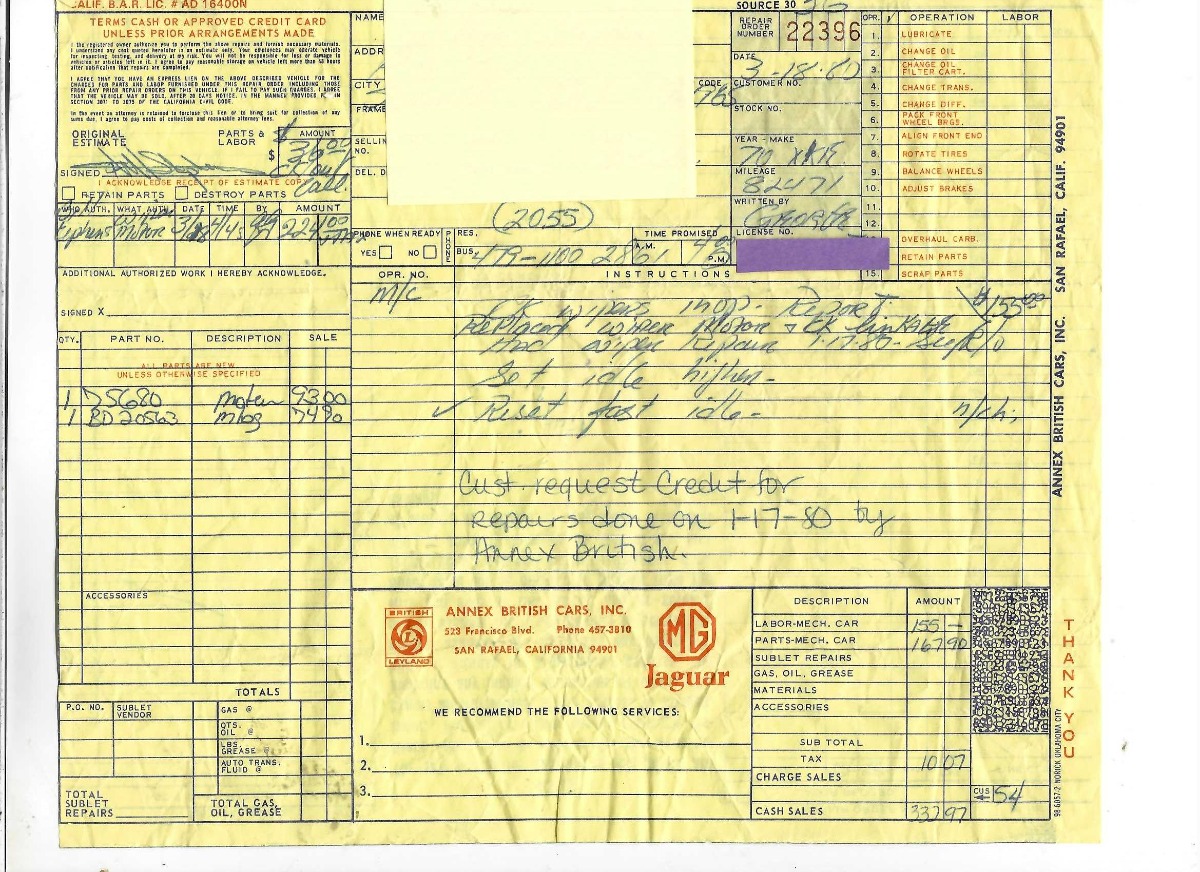 CALIF. B.A.R. LIC. # AD 16400N
TERMS CASH OR APPROVED CREDIT CARD
UNLESS PRIOR ARRANGEMENTS MADE
I the registered owner authorize you to perform the above repairs and furnish necessary materials.
I AGREE THAT YOU HAVE AN EXPRESS LIEN ON THE ABOVE DESCRIBED VEHICLE FOR THE
CHARGES FOR PARTS AND LABOR FURNISHED UNDER THIS REPAIR ORDER INCLUDING THOSE
FROM ANY PRIOR REPAIR ORDERS ON THIS VEHICLE. IF I FAIL TO PAY SUCH CHARGES, I AGREE
THAT THE VEHICLE MAY BE SOLD, AFTER 20 DAYS NOTICE, IN THE MANNER PROVIDED IN
SECTION 3071 TO 3075 OF THE CALIFORNIA CIVIL CODE.
ORIGINAL ESTIMATE
PARTS & LABOR
AMOUNT
$
SIGNED
I ACKNOWLEDGE RECEIPT OF ESTIMATE COPY
RETAIN PARTS DESTROY PARTS
Call.
WHO AUTH. WHAT AUTH. DATE TIME BY AMOUNT
Motor
ADDITIONAL AUTHORIZED WORK I HEREBY ACKNOWLEDGE.
SIGNED X
QTY. PART NO. DESCRIPTION SALE
ALL PARTS ARE NEW
UNLESS OTHERWISE SPECIFIED
1 75680 motor 93 00
1 BD 20563 74 90
ACCESSORIES
TOTALS
P.O. NO. SUBLET VENDOR
GAS @
QTS. OIL @
LBS. GREASE @
AUTO TRANS. FLUID @
TOTAL SUBLET REPAIRS
TOTAL GAS, OIL, GREASE
NAME
ADDR
CITY
CODE
FRAME
SELLIN
NO.
DEL. D
(2055)
PHONE WHEN READY
YES NO
PHONE
RES.
BUS. 479-1100 2861
TIME PROMISED
A.M.
P.M.
SOURCE 30
REPAIR ORDER NUMBER 22396
DATE 3-18-80
CUSTOMER NO.
STOCK NO.
YEAR - MAKE
70 XKE
MILEAGE
82471
WRITTEN BY
George
LICENSE NO.
OPR. OPERATION LABOR
1. LUBRICATE
2. CHANGE OIL
3. CHANGE OIL FILTER CART.
4. CHANGE TRANS.
5. CHANGE DIFF.
6. PACK FRONT WHEEL BRGS.
7. ALIGN FRONT END
8. ROTATE TIRES
9. BALANCE WHEELS
10. ADJUST BRAKES
11.
12.
OVERHAUL CARB.
RETAIN PARTS
15. SCRAP PARTS
OPR. NO. INSTRUCTIONS
m/c
CK wipers inop - Report $155.00
Replaced wiper Motor & CK linkage
Had wiper Repair 1-17-80
Set idle higher -
✓ Reset fast idle - n/ch.
Cust. request Credit for
repairs done on 1-17-80 by
Annex British.
BRITISH
LEYLAND
ANNEX BRITISH CARS, INC.
523 Francisco Blvd. Phone 457-3810
SAN RAFAEL, CALIFORNIA 94901
MG
Jaguar
WE RECOMMEND THE FOLLOWING SERVICES:
1.
2.
3.
DESCRIPTION AMOUNT
LABOR-MECH. CAR 155 —
PARTS-MECH. CAR 167 90
SUBLET REPAIRS
GAS, OIL, GREASE
MATERIALS
ACCESSORIES
SUB TOTAL
TAX 10 07
CHARGE SALES
CASH SALES 332 97
CUS 54
ANNEX BRITISH CARS, INC. SAN RAFAEL, CALIF. 94901
THANK YOU
98-6057-2 NORICK OKLAHOMA CITY